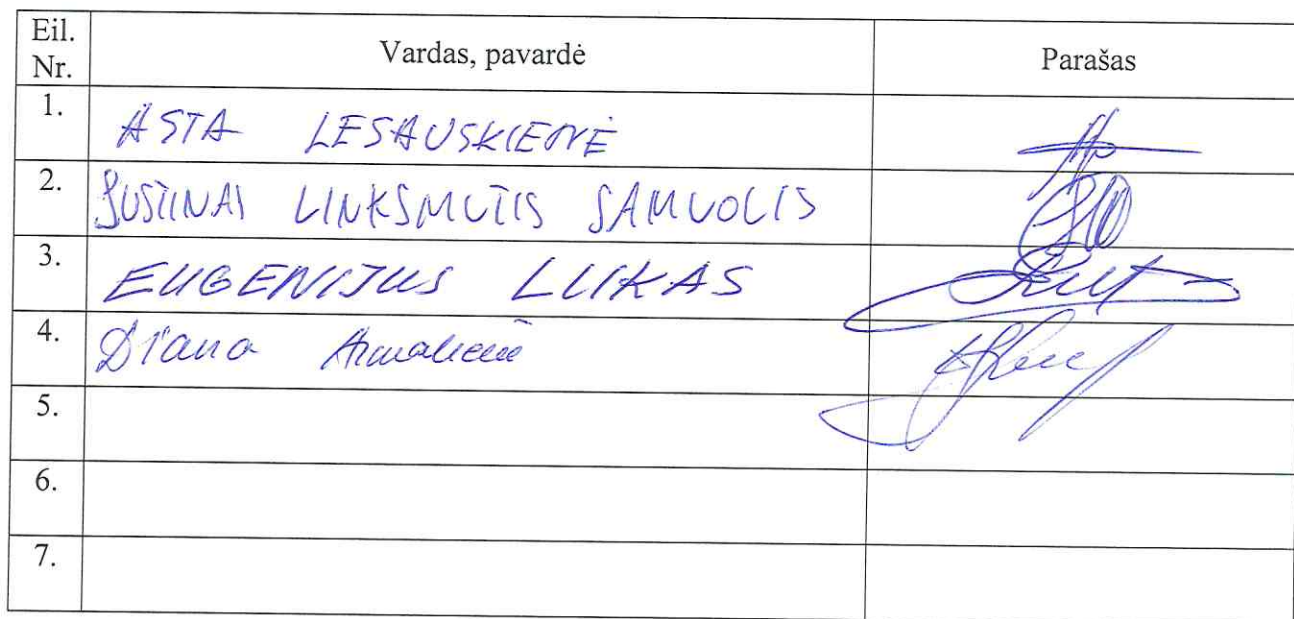 Eil. Nr. Vardas, pavardė Parašas
1. ASTA LESAUSKIENĖ
2. JUSTINAS LINKSMUTIS SAMUOLIS
3. EUGENIJUS LUKAS
4. Diana
5.
6.
7.